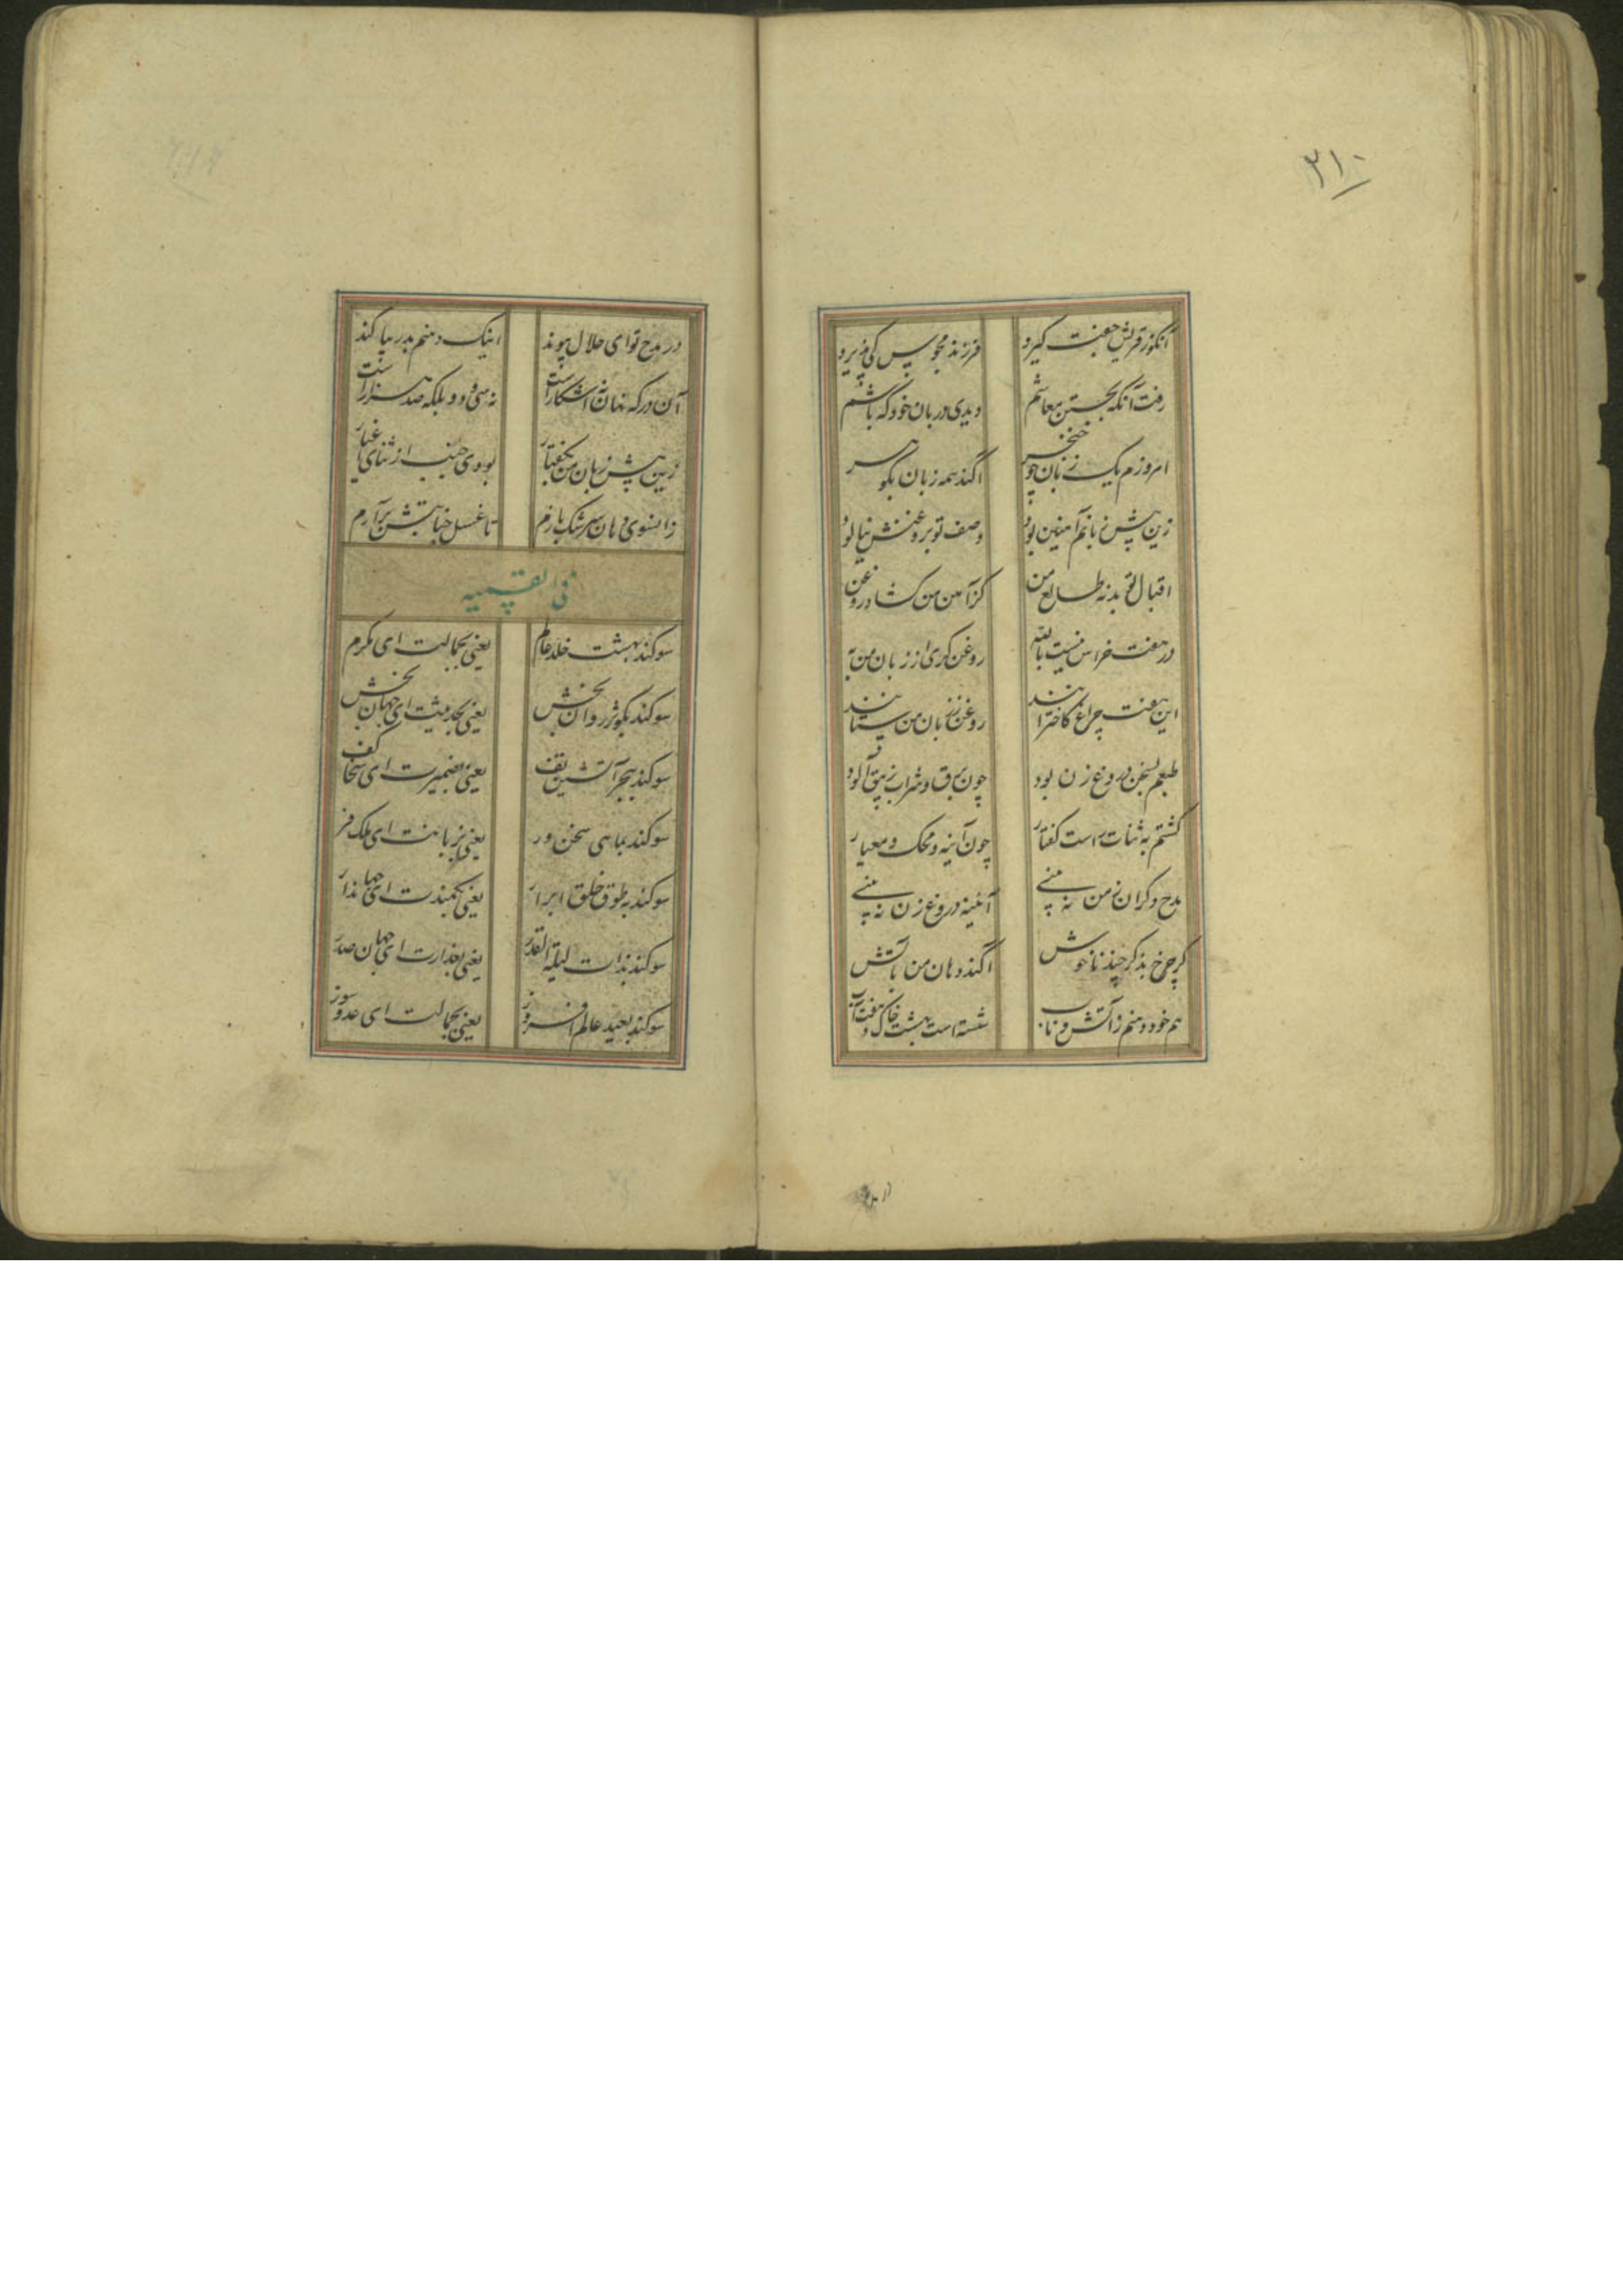 ۲۱۰
آنکو ز قریش جفت گیرد فرزند مجوس کی پذیرد
رفت آنکه بجستن معاشم دیدی دربان خود که باشم
امروزم یک زبان چو خنجر اکند همه زبان بکوهر
زین پیش زبانم آهنین بود وصف تو بروغنش نیالود
اقبال تو بد نه طالع من کز آهن من کشاد روغن
در هفت خراس نیست بالله روغن کری از زبان من به
این هفت چراغ کاخترانند روغن ز زبان من ستانند
طبعم بسخن دروغ زن بود چون برق و شراب زیبق آلود
کشتم به ثنات راست کفتار چون آینه و محک و معیار
مدح دکران ز من نه بینی آئینه دروغ زن نه بینی
کر چرخ بذکر چند ناخوش اکند دهان من بآتش
هم خود دهنم ز آتش ناب شسته است بهشت خاک و هفت آب
در مدح
در مدح تو ای حلال پیوند اینک دهنم بدر بیاکند
آن در که نهان نه آشکار است نه سی و دو بلکه صد هزار است
زین پیش زبان من بکفتار بودی جنب از ثنای اغیار
زانسوی دهان سرشک بارم تا غسل جنابتش برآرم
فی القسمیه
سوکند بهشت خلد عالم یعنی بجمالت ای مکرم
سوکند بکوثر روان بخش یعنی بحدیثت ای جهان بخش
سوکند ببحر آتشین تف یعنی بضمیرت ای سخا کف
سوکند بماهی سخن ور یعنی بزبانت ای ملک فر
سوکند به طوق خلق ابرار یعنی بکمندت ای جهاندار
سوکند بذات لیلة القدر یعنی بعذارت ای جهان صدر
سوکند بعید عالم افروز یعنی بجمالت ای عدو سوز